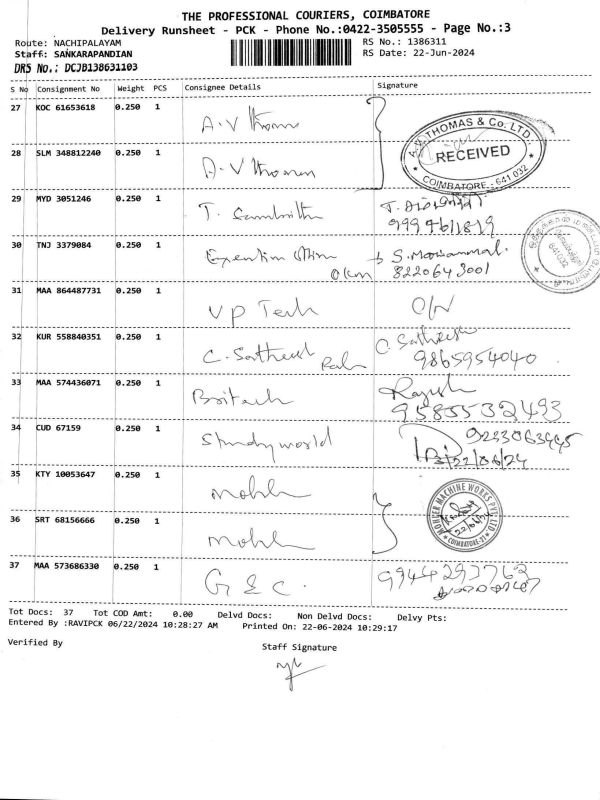 THE PROFESSIONAL COURIERS, COIMBATORE
Delivery Runsheet - PCK - Phone No.:0422-3505555 - Page No.:3
Route: NACHIPALAYAM
RS No.: 1386311
Staff: SANKARAPANDIAN
RS Date: 22-Jun-2024
DRS No.: DCJB138631103
S No Consignment No Weight PCS Consignee Details Signature
27 KOC 61653618 0.250 1 A.V Thomas
A.V. THOMAS & Co. LTD.
RECEIVED
COIMBATORE - 641 032
28 SLM 348812240 0.250 1 A.V Thomas
29 MYD 3051246 0.250 1 T.
30 TNJ 3379084 0.250 1
8220643001
641 032
31 MAA 864487731 0.250 1 VP Tech
32 KUR 558840351 0.250 1 C. Satheesh
9865954040
33 MAA 574436071 0.250 1 Britech Rajesh
9585532493
34 CUD 67159 0.250 1 Study world
22/06/24
35 KTY 10053647 0.250 1
MACHINE WORKS PVT. LTD
22/06/24
COIMBATORE-21
36 SRT 68156666 0.250 1
37 MAA 573686330 0.250 1 G & C. 9944293762
Tot Docs: 37 Tot COD Amt: 0.00 Delvd Docs: Non Delvd Docs: Delvy Pts:
Entered By :RAVIPCK 06/22/2024 10:28:27 AM Printed On: 22-06-2024 10:29:17
Verified By
Staff Signature